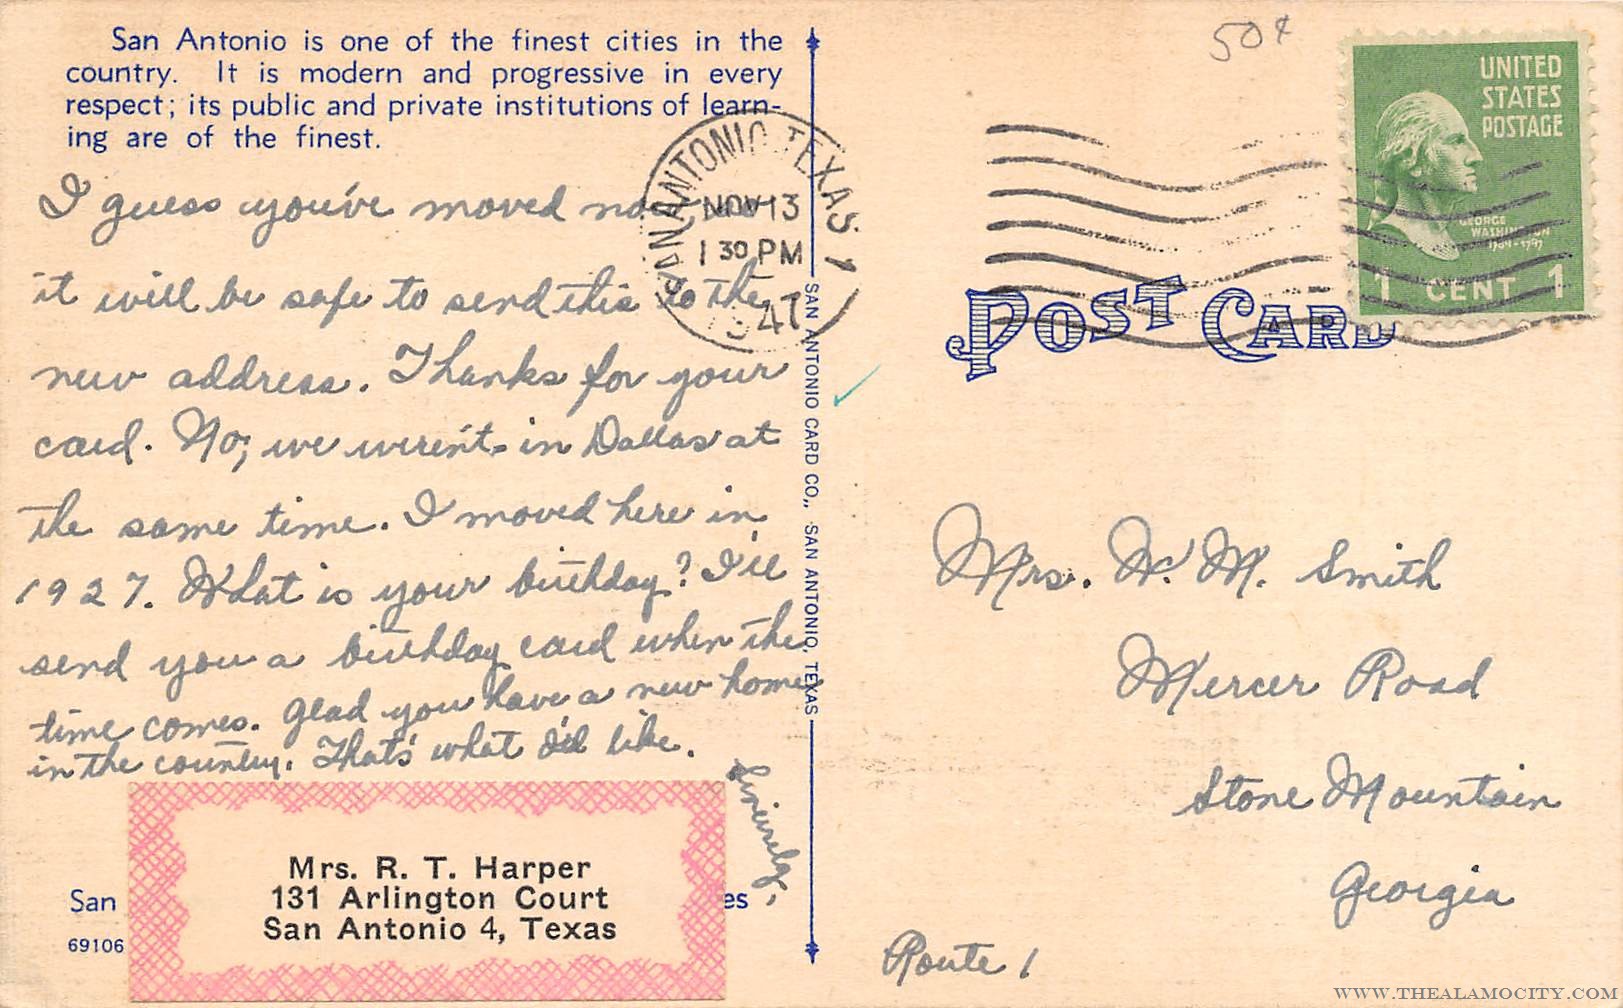 San Antonio is one of the finest cities in the
country. It is modern and progressive in every
respect; its public and private institutions of learn-
ing are of the finest.
I guess you've moved now
it will be safe to send this to the
new address. Thanks for your
card. No, we weren't in Dallas at
the same time. I moved here in
1927. What is your birthday? I'll
send you a birthday card when the
time comes. Glad you have a new home
in the country. That's what I'd like.
Sincerely,
Mrs. R. T. Harper
131 Arlington Court
San Antonio 4, Texas
San
es
69106
SAN ANTONIO, TEXAS 1
NOV 13
1 30 PM
1947
SAN ANTONIO CARD CO., SAN ANTONIO, TEXAS
50¢
UNITED
STATES
POSTAGE
GEORGE
WASHINGTON
1789-1797
1 CENT 1
POST CARD
Mrs. W. M. Smith
Mercer Road
Stone Mountain
Georgia
Route 1
WWW.THEALAMOCITY.COM